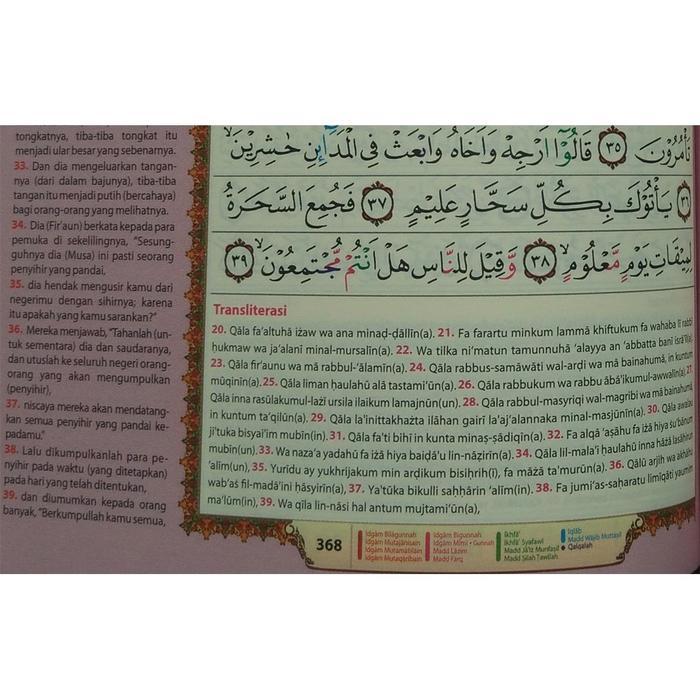 tongkatnya, tiba-tiba tongkat itu
menjadi ular besar yang sebenarnya.
33. Dan dia mengeluarkan tangan-
nya (dari dalam bajunya), tiba-tiba
tangan itu menjadi putih (bercahaya)
bagi orang-orang yang melihatnya.
34. Dia (Fir'aun) berkata kepada para
pemuka di sekelilingnya, "Sesung-
guhnya dia (Musa) ini pasti seorang
penyihir yang pandai,
35. dia hendak mengusir kamu dari
negerimu dengan sihirnya; karena
itu apakah yang kamu sarankan?"
36. Mereka menjawab, "Tahanlah (un-
tuk sementara) dia dan saudaranya,
dan utuslah ke seluruh negeri orang-
orang yang akan mengumpulkan
(penyihir),
37. niscaya mereka akan mendatang-
kan semua penyihir yang pandai ke-
padamu."
38. Lalu dikumpulkanlah para pe-
nyihir pada waktu (yang ditetapkan)
pada hari yang telah ditentukan,
39. dan diumumkan kepada orang
banyak, "Berkumpullah kamu semua,
تَأْمُرُوْنَ ٣٥ قَالُوْٓا اَرْجِهْ وَاَخَاهُ وَابْعَثْ فِى الْمَدَاۤىِٕنِ حٰشِرِيْنَۙ
٣٦ يَأْتُوْكَ بِكُلِّ سَحَّارٍ عَلِيْمٍ ٣٧ فَجُمِعَ السَّحَرَةُ
لِمِيْقَاتِ يَوْمٍ مَّعْلُوْمٍۙ ٣٨ وَّقِيْلَ لِلنَّاسِ هَلْ اَنْتُمْ مُّجْتَمِعُوْنَۙ ٣٩
Transliterasi
20. Qāla fa'altuhā iżaw wa ana minaḍ-ḍāllīn(a). 21. Fa farartu minkum lammā khiftukum fa wahaba lī rabbī
ḥukmaw wa ja'alanī minal-mursalīn(a). 22. Wa tilka ni'matun tamunnuhā 'alayya an 'abbatta banī isrā'īl(a).
23. Qāla fir'aunu wa mā rabbul-'ālamīn(a). 24. Qāla rabbus-samāwāti wal-arḍi wa mā bainahumā, in kuntum
mūqinīn(a). 25. Qāla liman ḥaulahū alā tastami'ūn(a). 26. Qāla rabbukum wa rabbu ābā'ikumul-awwalīn(a). 27.
Qāla inna rasūlakumul-lażī ursila ilaikum lamajnūn(un). 28. Qāla rabbul-masyriqi wal-magribi wa mā bainahumā
in kuntum ta'qilūn(a). 29. Qāla la'inittakhażta ilāhan gairī la'aj'alannaka minal-masjūnīn(a). 30. Qāla awalau
ji'tuka bisyai'im mubīn(in). 31. Qāla fa'ti bihī in kunta minaṣ-ṣādiqīn(a). 32. Fa alqā 'aṣāhu fa iżā hiya ṡu'bānum
mubīn(un). 33. Wa naza'a yadahū fa iżā hiya baiḍā'u lin-nāẓirīn(a). 34. Qāla lil-mala'i ḥaulahū inna hāżā lasāḥirun
'alīm(un), 35. Yurīdu ay yukhrijakum min arḍikum bisiḥrih(ī), fa māżā ta'murūn(a). 36. Qālū arjih wa akhāhu
wab'aṡ fil-madā'ini ḥāsyirīn(a), 37. Ya'tūka bikulli saḥḥārin 'alīm(in). 38. Fa jumi'as-saḥaratu limīqāti yaumim
ma'lūm(in), 39. Wa qīla lin-nāsi hal antum mujtami'ūn(a),
368
Idgām Bilāgunnah
Idgām Mutajānisain
Idgām Mutamāṡilain
Idgām Mutaqāribain
Idgām Bigunnah
Idgām Mīmi • Gunnah
Madd Lāzim
Madd Farq
Ikhfā'
Ikhfā' Syafawī
Madd Jā'iz Munfaṣil
Madd Ṣilah Ṭawīlah
Iqlāb
Madd Wājib Muttaṣil
Qalqalah